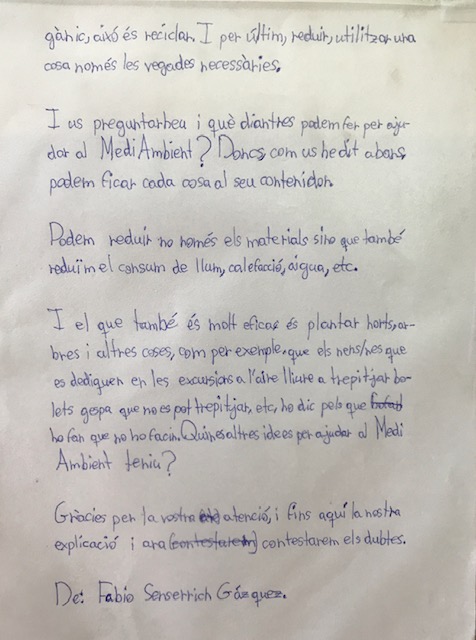 gànic, això és reciclar. I per últim, reduir, utilitzar una
cosa només les vegades necessàries.
I us preguntarheu i què diantres podem fer per aju-
dar al Medi Ambient? Doncs, com us he dit abans,
podem ficar cada cosa al seu contenidor.
Podem reduir no només els materials sino que també
reduïm el consum de llum, calefacció, aigua, etc.
I el que també és molt eficaç és plantar horts, ar-
bres i altres coses, com per exemple, que els nens/nes que
es dediquen en les excursions a l'aire lliure a trepitjar bo-
lets gespa que no es pot trepitjar, etc, ho dic pels que
ho fan que no ho facin. Quines altres idees per ajudar al Medi
Ambient teniu?
Gràcies per la vostra atenció, i fins aquí la nostra
explicació i ara (contestarem) contestarem els dubtes.
De: Fabio Senserrich Gázquez.